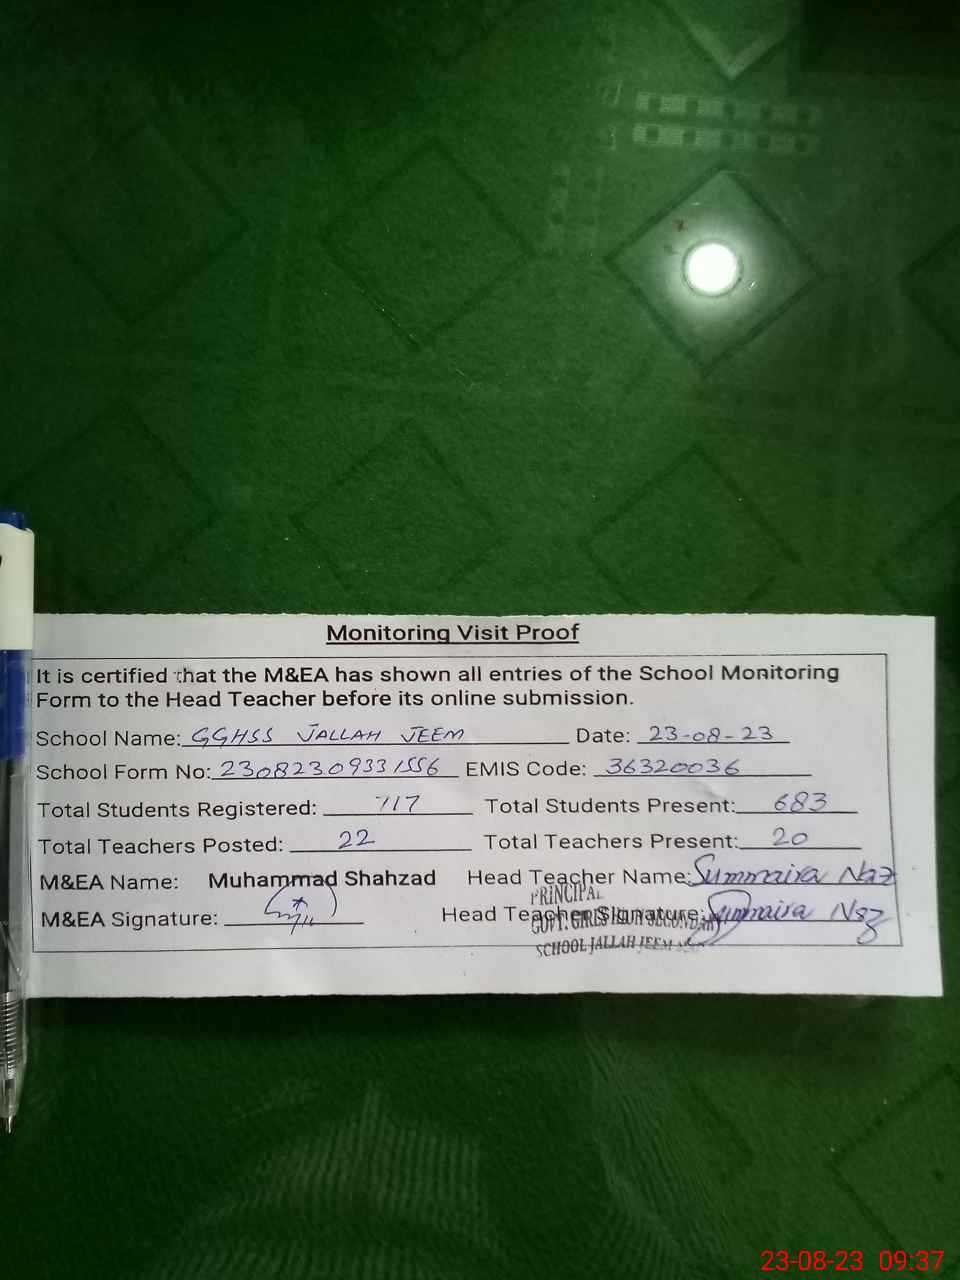 Monitoring Visit Proof
It is certified that the M&EA has shown all entries of the School Monitoring
Form to the Head Teacher before its online submission.
School Name: GGHSS JALLAH JEEM Date: 23-08-23
School Form No: 23082309331556 EMIS Code: 36320036
Total Students Registered: 717 Total Students Present: 683
Total Teachers Posted: 22 Total Teachers Present: 20
M&EA Name: Muhammad Shahzad Head Teacher Name: Summaira Naz
PRINCIPAL
M&EA Signature: Head Teacher Signature: Summaira Naz
GOVT. GIRLS HIGH SECONDARY
SCHOOL JALLAH JEEM
23-08-23 09:37